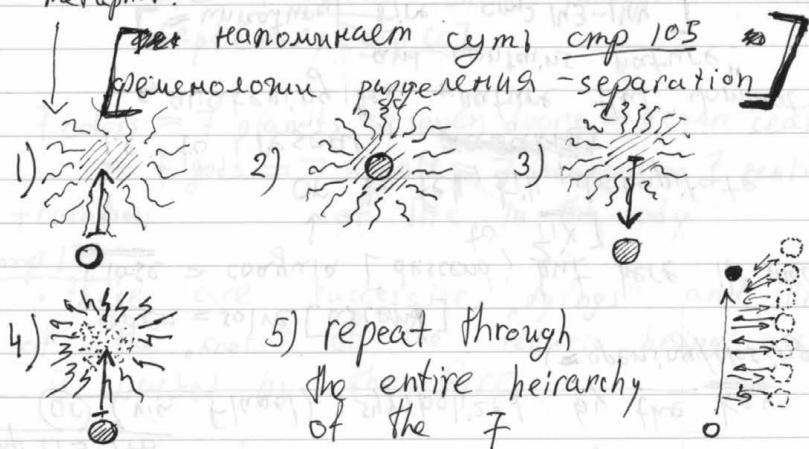 напоминает суть стр 105
феменологии разделения - separation
1)
2)
3)
4)
5) repeat through
the entire heirarchy
of the 7